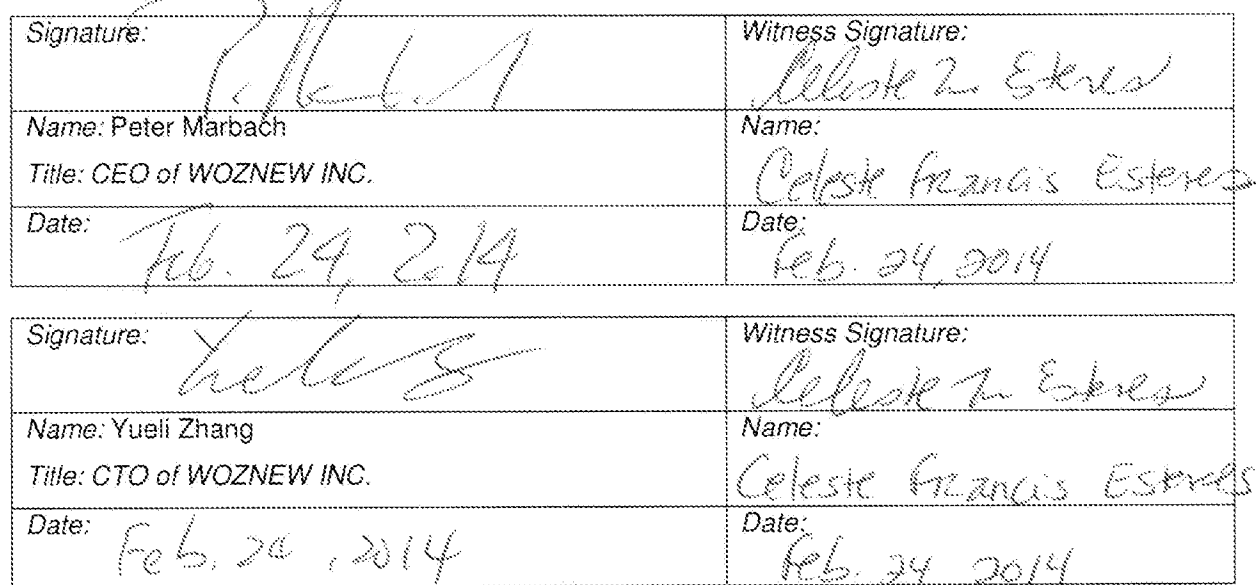 Signature:
Witness Signature:
Name: Peter Marbach
Title: CEO of WOZNEW INC.
Name:
Celeste Francis Esteves
Date:
Feb. 24, 2014
Date:
Feb. 24, 2014
Signature:
Witness Signature:
Name: Yueli Zhang
Title: CTO of WOZNEW INC.
Name:
Celeste Francis Esteves
Date:
Feb. 24, 2014
Date:
Feb. 24 2014